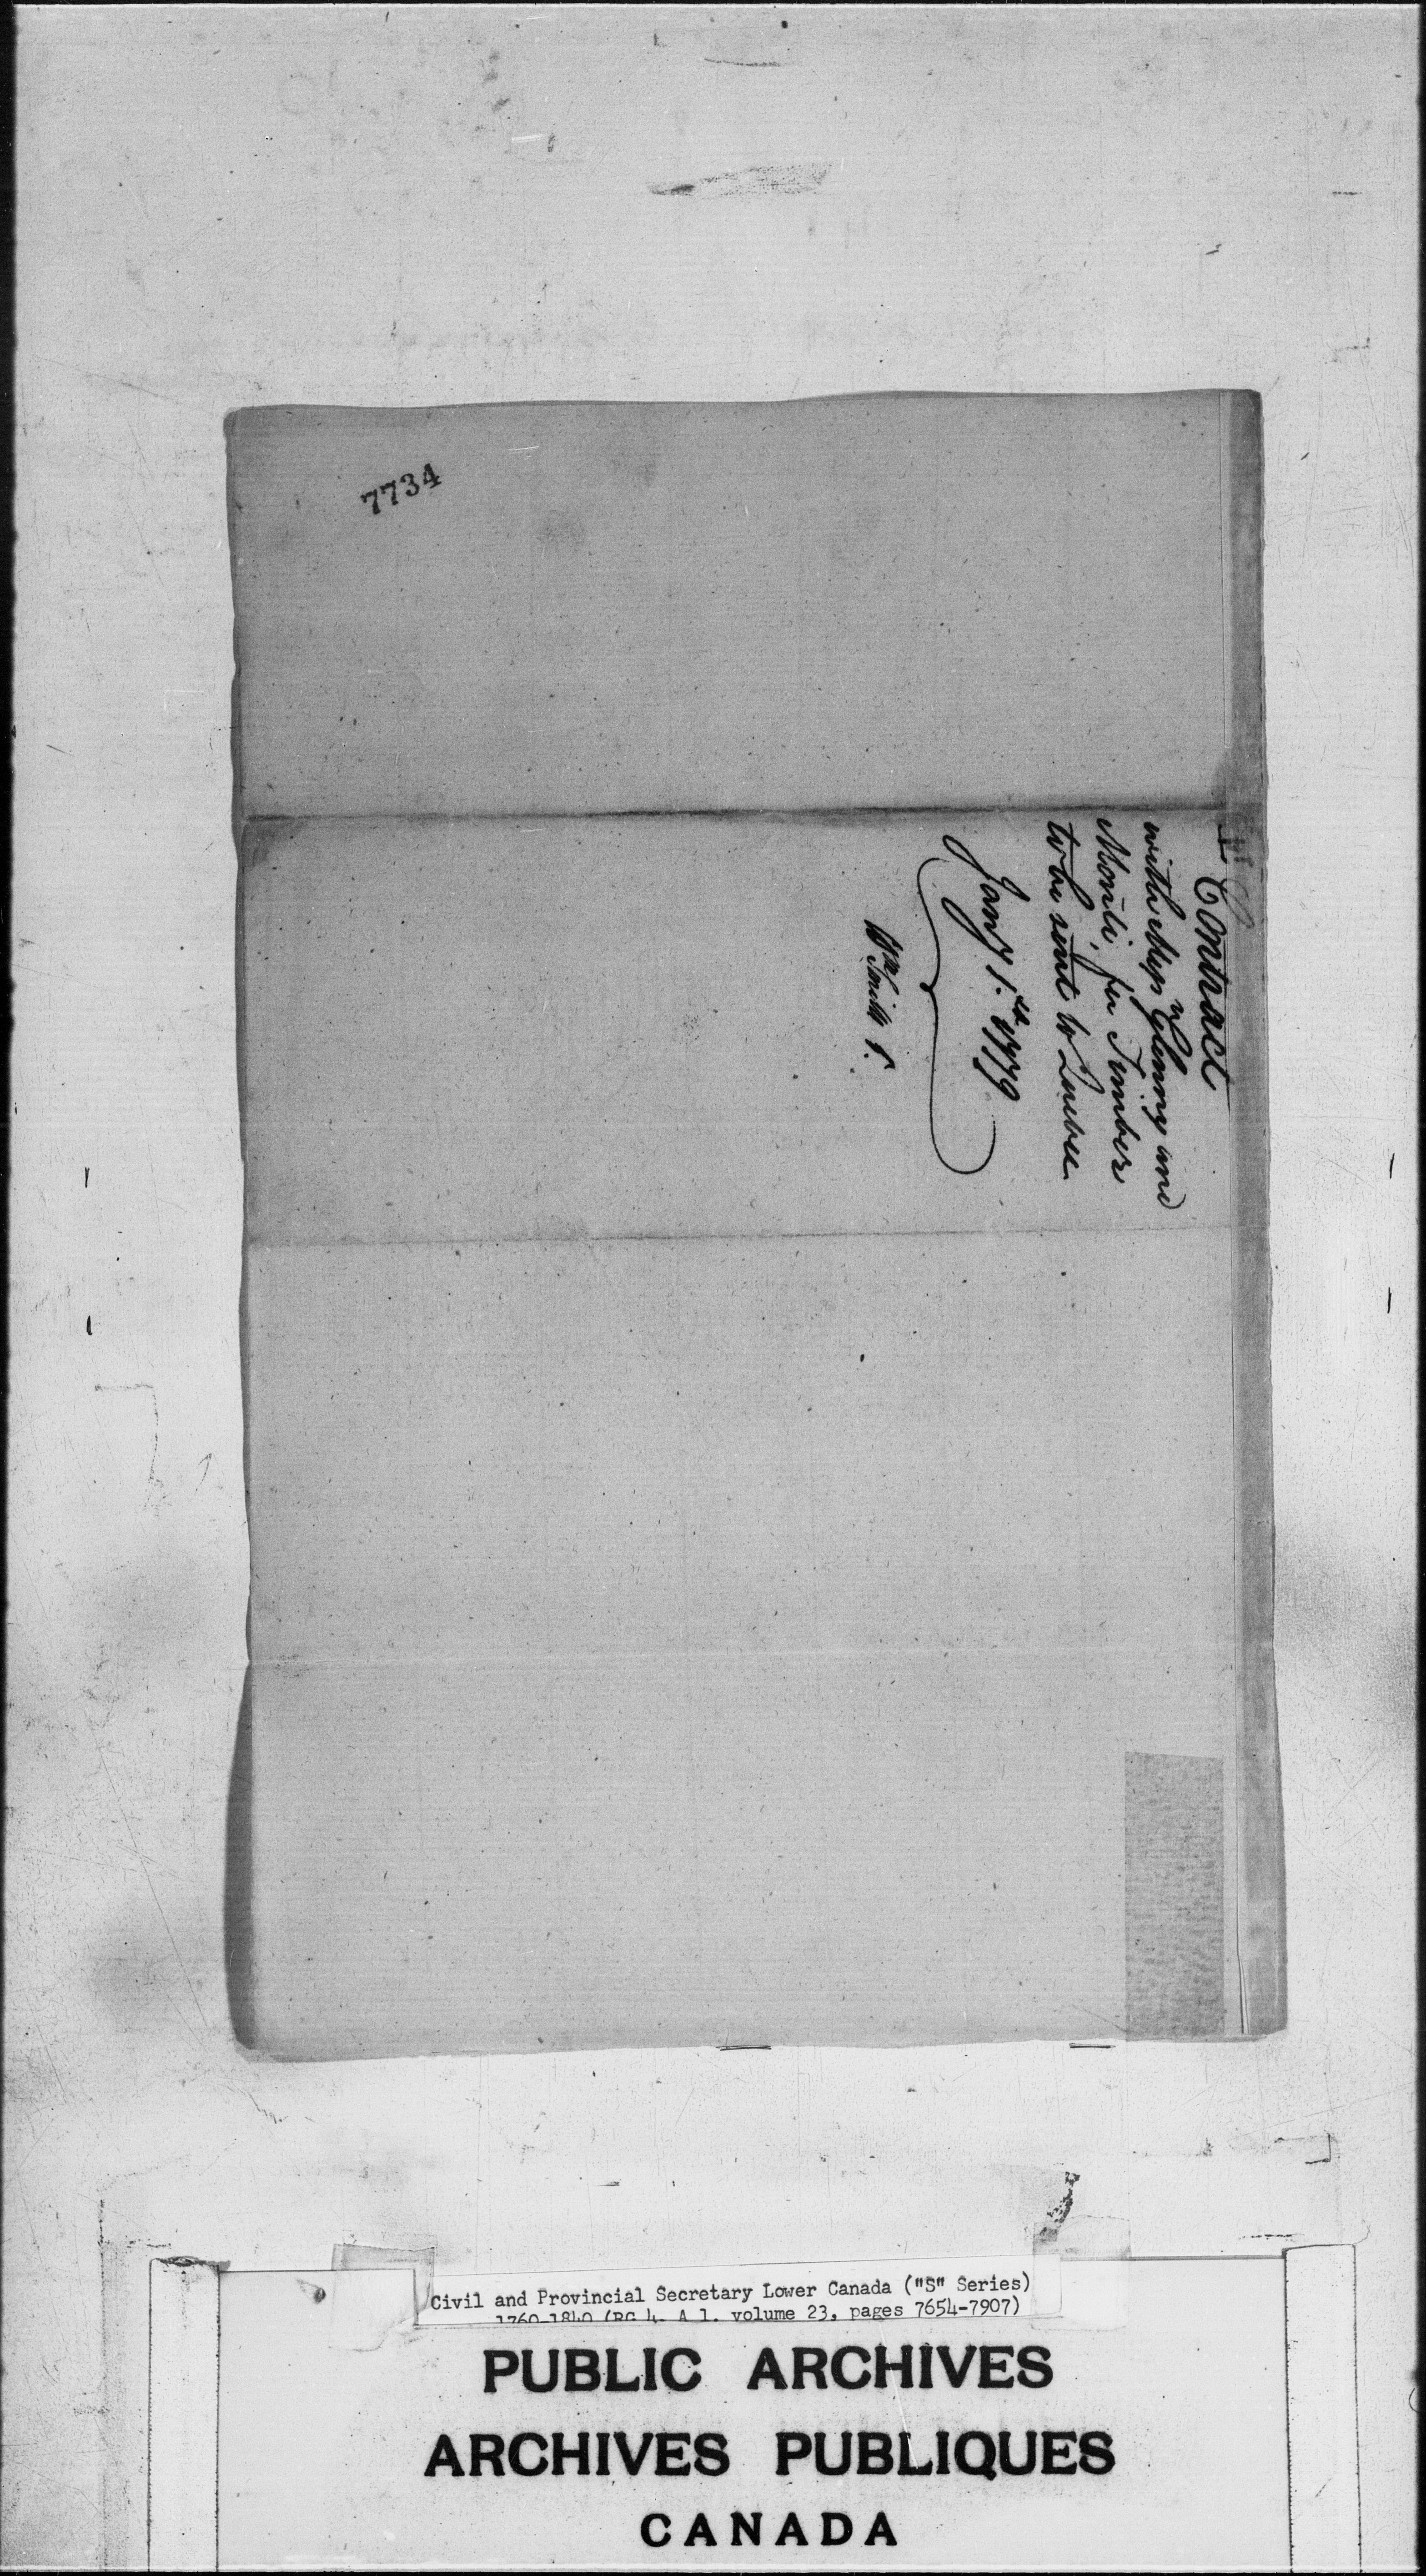 7734
Contract
with Mess.rs Glenny and
for Timber
to be sent to Quebec
Jany 1.st 1779
Wm Smith
Civil and Provincial Secretary Lower Canada ("S" Series)
1760-1840 (RG 4, A 1, volume 23, pages 7654-7907)
PUBLIC ARCHIVES
ARCHIVES PUBLIQUES
CANADA